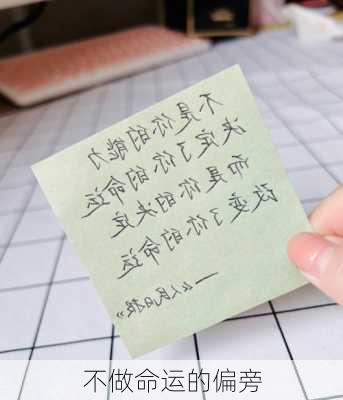 不是你的能力
决定了你的命运
而是你的决定
改变了你的命运
——《人民日报》
不做命运的偏旁